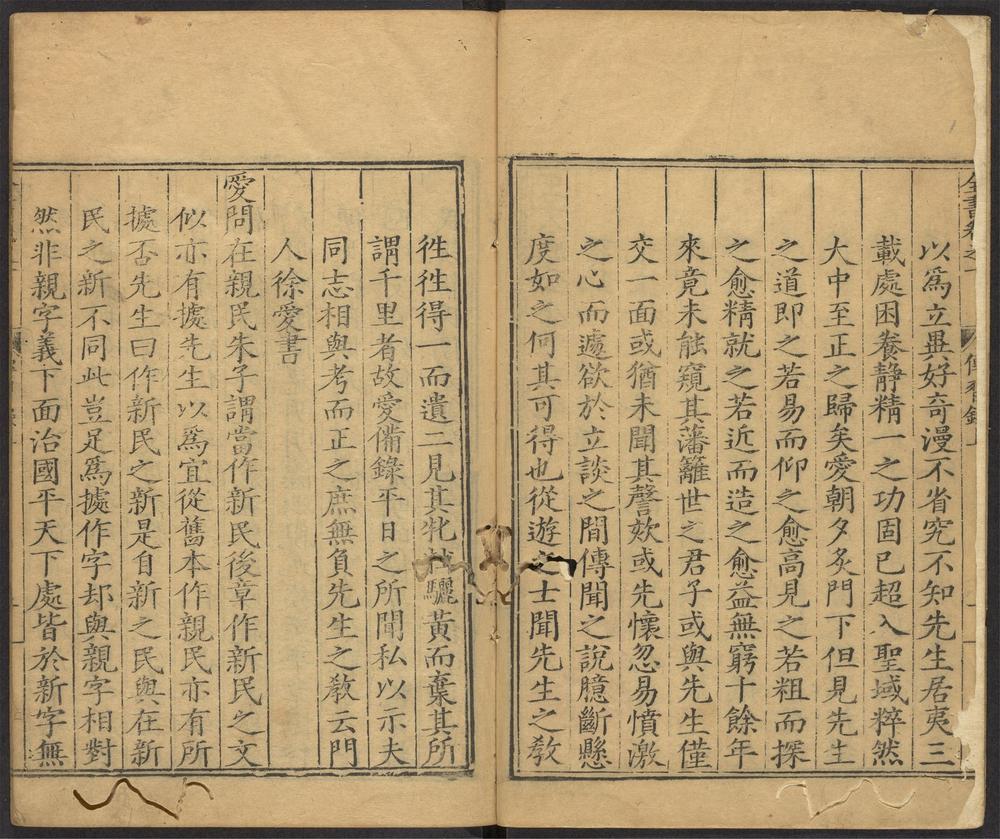 全書卷之一
傳習錄上
以爲立異好奇漫不省究不知先生居夷三
載處困養靜精一之功固已超入聖域粹然
大中至正之歸矣愛朝夕炙門下但見先生
之道即之若易而仰之愈高見之若粗而探
之愈精就之若近而造之愈益無窮十餘年
來竟未能窺其藩籬世之君子或與先生僅
交一面或猶未聞其謦欬或先懷忽易憤激
之心而遽欲於立談之間傳聞之說臆斷懸
度如之何其可得也從遊之士聞先生之教
徃徃得一而遺二見其牝牡驪黃而棄其所
謂千里者故愛備錄平日之所聞私以示夫
同志相與考而正之庶無負先生之敎云門
人徐愛書
愛問在親民朱子謂當作新民後章作新民之文
似亦有據先生以爲宜從舊本作親民亦有所
據否先生曰作新民之新是自新之民與在新
民之新不同此豈足爲據作字却與親字相對
然非親字義下面治國平天下處皆於新字無